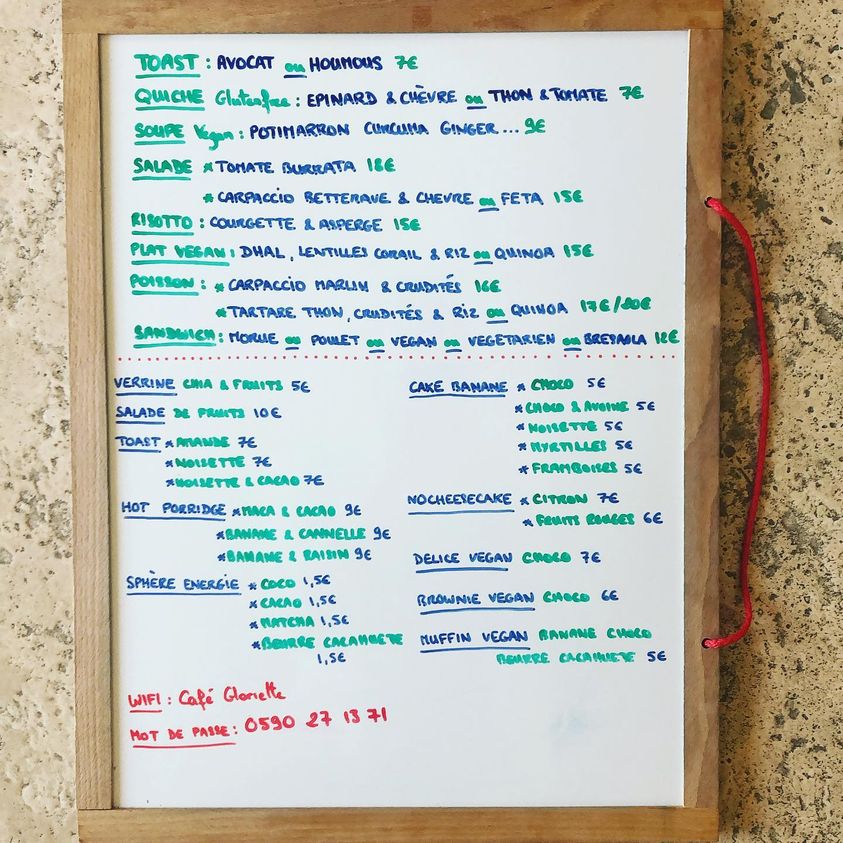 TOAST : AVOCAT ou HOUMOUS 7€
QUICHE Glutenfree : EPINARD & CHÈVRE ou THON & TOMATE 7€
SOUPE Vegan : POTIMARRON CURCUMA GINGER... 9€
SALADE * TOMATE BURRATA 18€
* CARPACCIO BETTERAVE & CHEVRE ou FETA 15€
RISOTTO : COURGETTE & ASPERGE 15€
PLAT VEGAN : DHAL, LENTILLES CORAIL & RIZ ou QUINOA 15€
POISSON : * CARPACCIO MARLIN & CRUDITÉS 16€
* TARTARE THON, CRUDITÉS & RIZ ou QUINOA 17€/20€
SANDWICH : MORUE ou POULET ou VEGAN ou VEGETARIEN ou BRESAOLA 12€
VERRINE CHIA & FRUITS 5€
SALADE DE FRUITS 10€
TOAST * AMANDE 7€
* NOISETTE 7€
* NOISETTE & CACAO 7€
HOT PORRIDGE * MACA & CACAO 9€
* BANANE & CANNELLE 9€
* BANANE & RAISIN 9€
SPHÈRE ENERGIE * COCO 1,5€
* CACAO 1,5€
* MATCHA 1,5€
* BEURRE CACAHUETE
1,5€
CAKE BANANE * CHOCO 5€
* CHOCO & AVOINE 5€
* NOISETTE 5€
* MYRTILLES 5€
* FRAMBOISES 5€
NOCHEESECAKE * CITRON 7€
* FRUITS ROUGES 6€
DELICE VEGAN CHOCO 7€
BROWNIE VEGAN CHOCO 6€
MUFFIN VEGAN BANANE CHOCO
BEURRE CACAHUETE 5€
WIFI : Café Gloriette
MOT DE PASSE : 0590 27 13 71